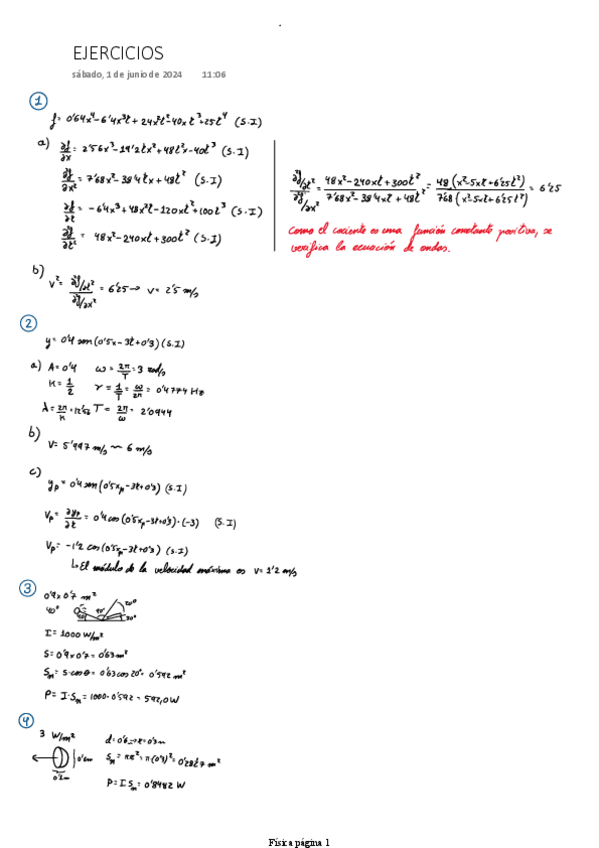 EJERCICIOS
sábado, 1 de junio de 2024 11:06
1
f= 0'64x⁴-6'4x³t+24x²t²-40xt³+25t⁴ (S.I)
a) ∂f/∂x = 2'56x³-19'2tx²+48t²x-40t³ (S.I)
∂²f/∂x² = 7'68x²-38'4tx+48t² (S.I)
∂f/∂t = -6'4x³+48x²t-120xt²+100t³ (S.I)
∂²f/∂t² = 48x²-240xt+300t² (S.I)
∂²f/∂t² / ∂²f/∂x² = 48x²-240xt+300t² / 7'68x²-38'4xt+48t² = 48(x²-5xt+6'25t²) / 7'68(x²-5xt+6'25t²) = 6'25
Como el cociente es una función constante positiva, se
verifica la ecuación de ondas.
b) v² = ∂²f/∂t² / ∂²f/∂x² = 6'25 → v= 2'5 m/s
2
y= 0'4 sen(0'5x-3t+0'3) (S.I)
a) A=0'4 ω= 2π/T = 3 rad/s
K= 1/2 γ= 1/T = ω/2π = 0'4774 Hz
λ= 2π/K = 12'56 T= 2π/ω = 2'0944
b)
V= 5'997 m/s ~ 6 m/s
c)
yₚ= 0'4 sen(0'5xₚ-3t+0'3) (S.I)
Vₚ= ∂yₚ/∂t = 0'4 cos(0'5xₚ-3t+0'3)·(-3) (S.I)
Vₚ= -1'2 cos(0'5xₚ-3t+0'3) (S.I)
↳El módulo de la velocidad máxima es V= 1'2 m/s
3
0'9x0'7 m²
40°
I= 1000 W/m²
S= 0'9x0'7= 0'63m²
Sₙ= S·cosθ= 0'63cos20°= 0'592 m²
P= I·Sₙ= 1000·0'592= 592,0W
4
3 W/m²
d= 0'6→r=0'3m
Sₙ= πr²= π·(0'3)²= 0'2827 m²
P=I Sₙ= 0'8482 W
Física página 1